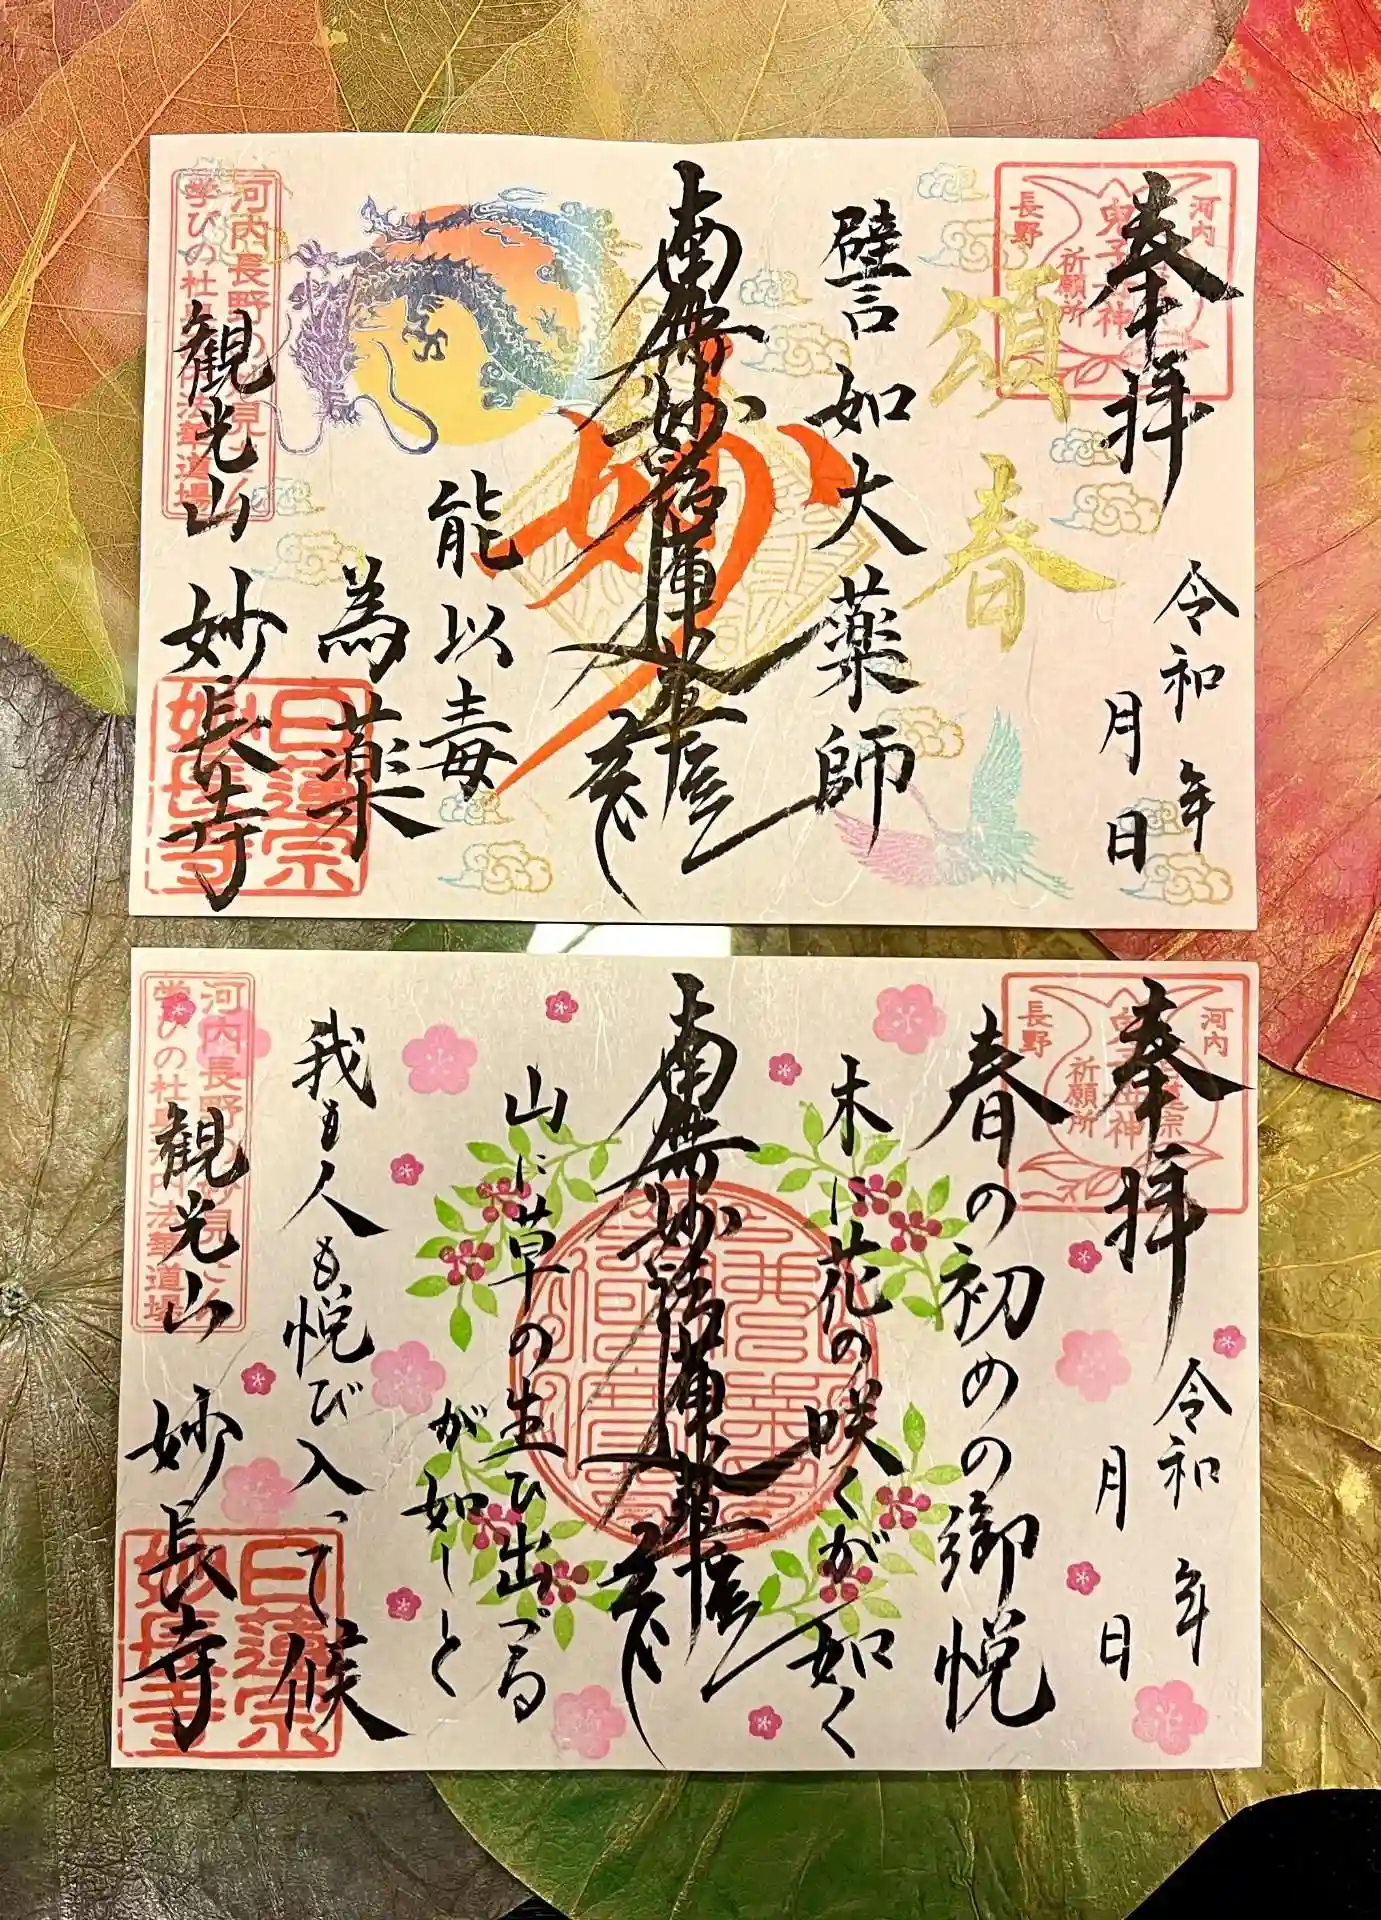 奉拝
河内
長野
祈願所
令和 年
月 日
頌春
譬如大薬師
南無妙法蓮華経
妙
能以毒
為薬
河内長野の
学びの杜
法華道場
観光山 妙長寺
日蓮宗
妙長寺
奉拝
河内
長野
祈願所
令和 年
月 日
春の初めの御悦
木に花の咲くが如く
南無妙法蓮華経
山に草の生ひ出づる
が如しと
我も人も悦び入って候
河内長野の
学びの杜
法華道場
観光山 妙長寺
日蓮宗
妙長寺